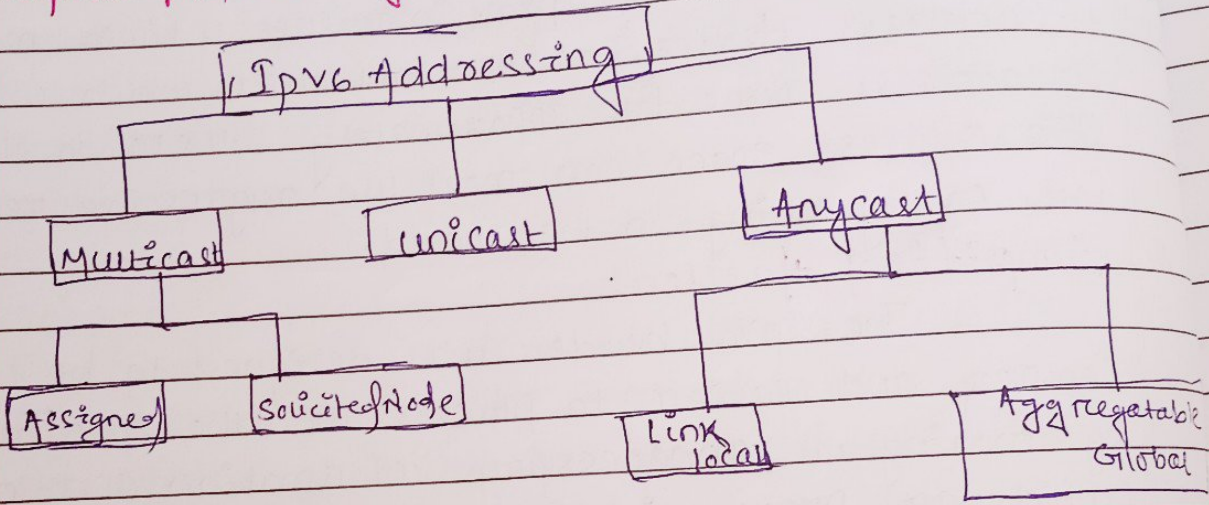 Ipv6 Addressing
Multicast
Unicast
Anycast
Assigned
Solicited Node
Link
local
Aggregatable
Global